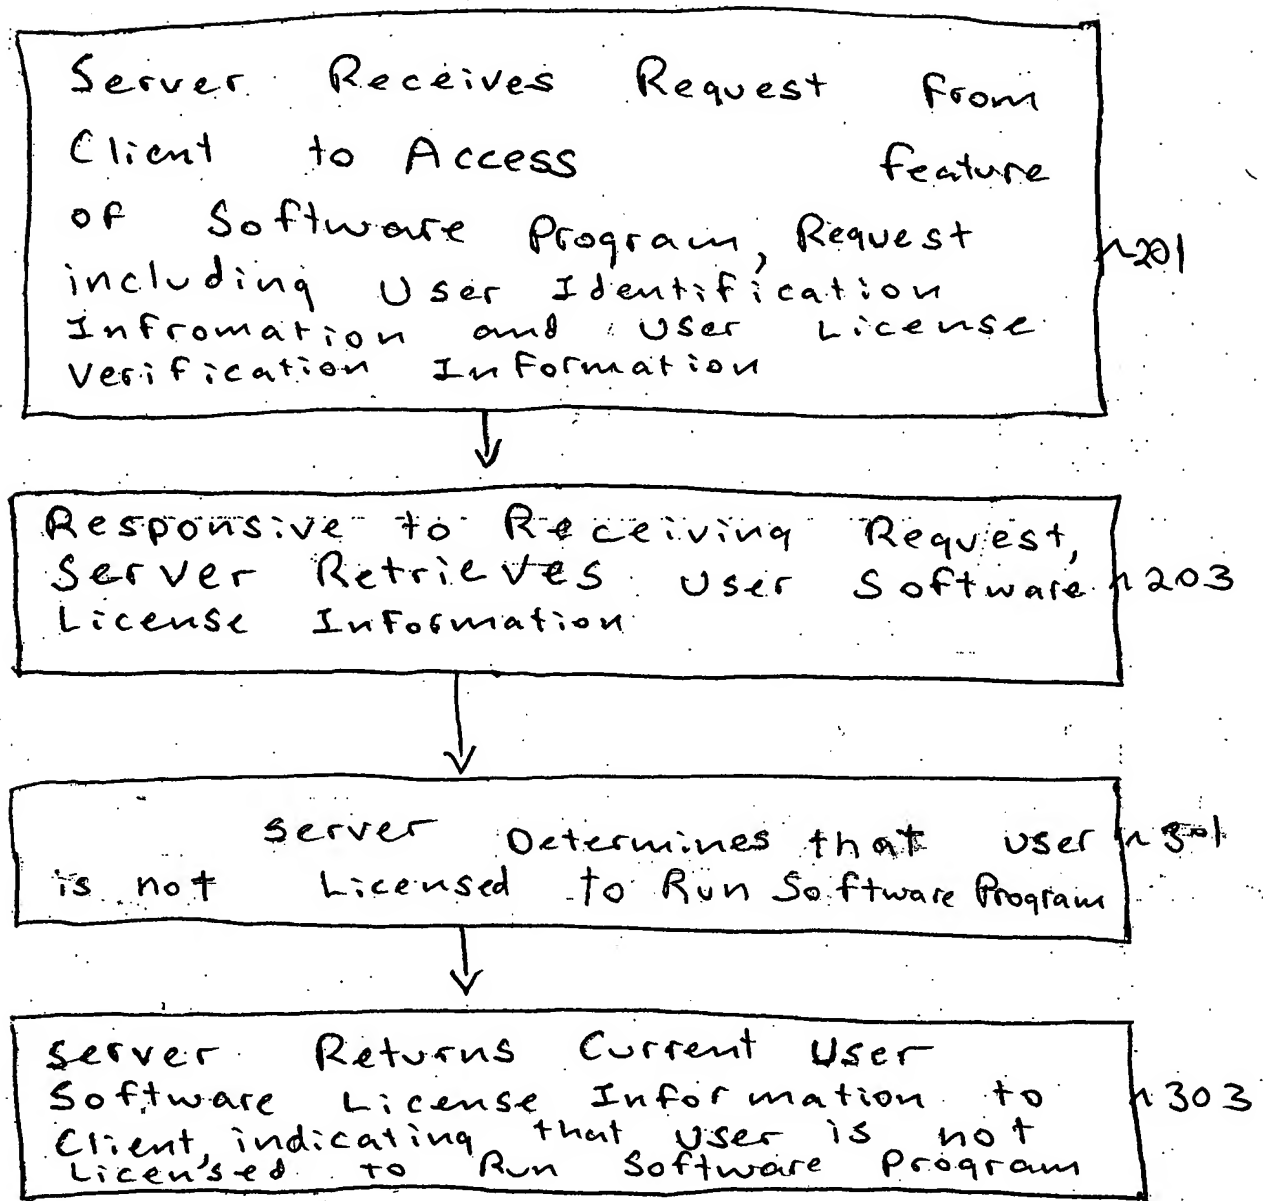 Server Receives Request From
Client to Access Feature
of Software Program, Request
including User Identification
Infromation and User License
Verification Information
201
Responsive to Receiving Request,
Server Retrieves User Software
License Information
203
Server Determines that User
is not Licensed to Run Software Program
301
Server Returns Current User
Software License Information to
Client, indicating that User is not
Licensed to Run Software Program
303